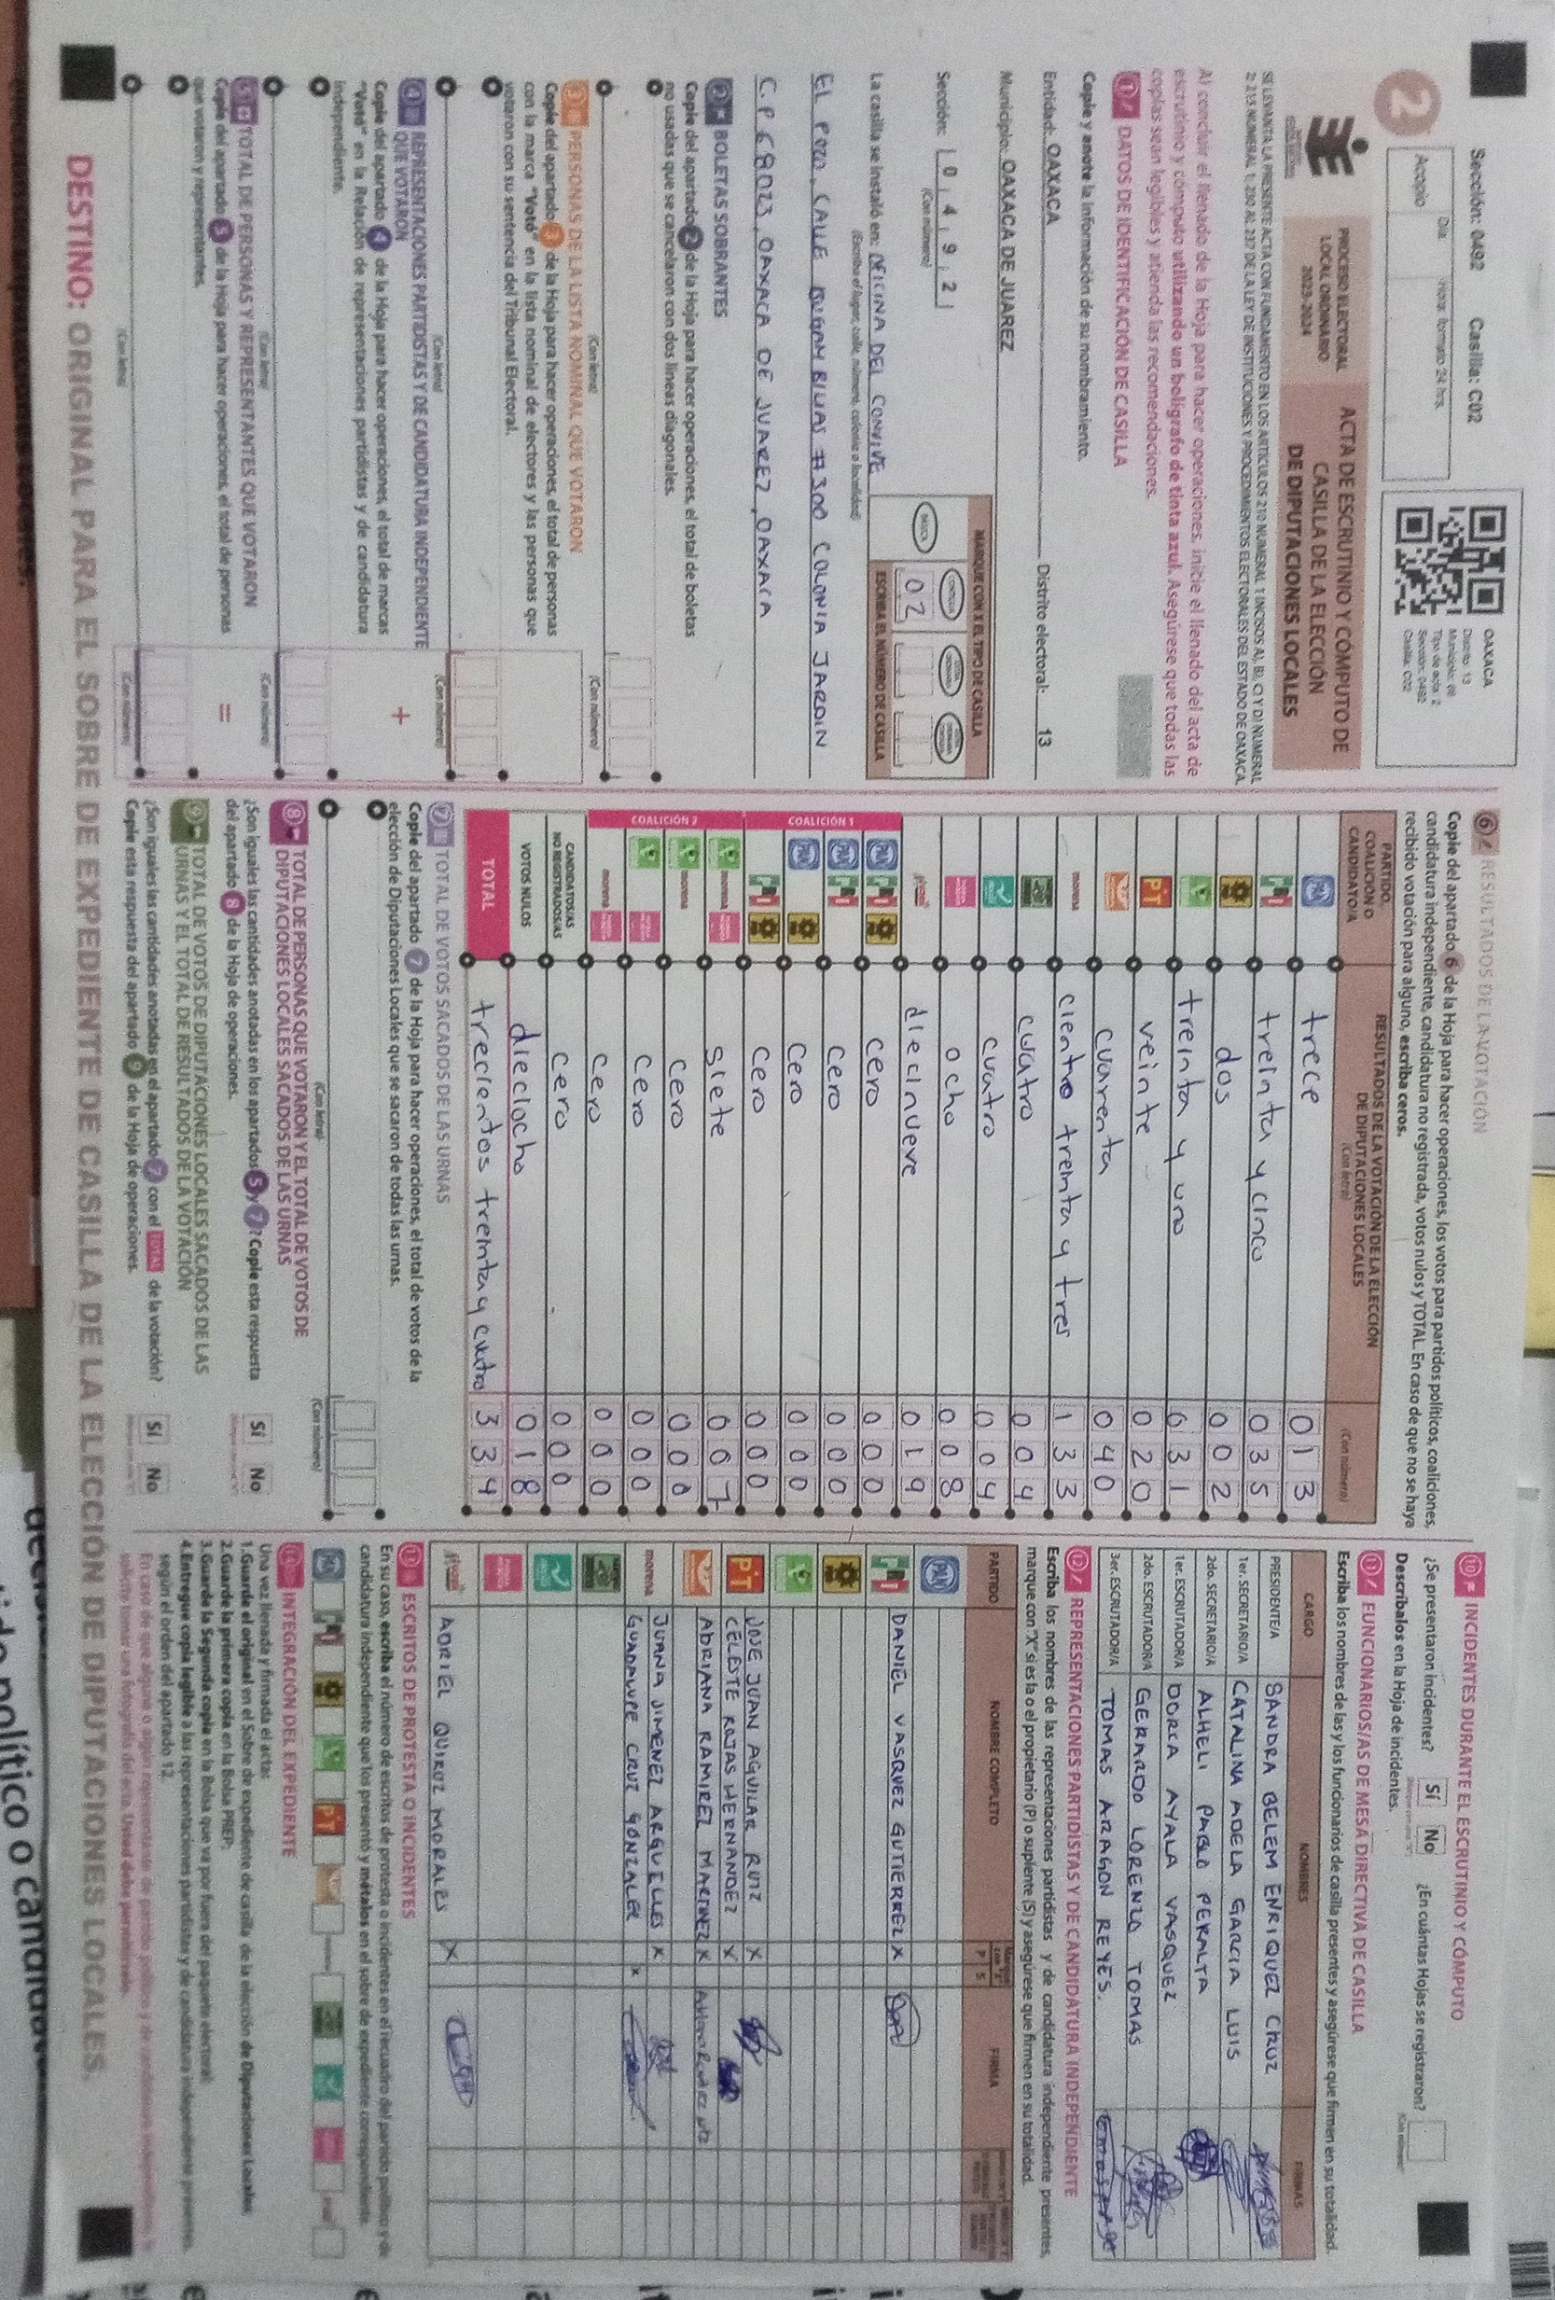 Sección: 0492 Casilla: C02
2
Acopio
Día
Hora: formato 24 hrs.
OAXACA
Distrito: 13
Tipo de acta: 2
Casilla: C02
PROCESO ELECTORAL
LOCAL ORDINARIO
2023-2024
ACTA DE ESCRUTINIO Y CÓMPUTO DE
CASILLA DE LA ELECCIÓN
DE DIPUTACIONES LOCALES
SE LEVANTA LA PRESENTE ACTA CON FUNDAMENTO EN LOS ARTÍCULOS 210 NUMERAL 1 INCISOS A), B), C) Y D) NUMERAL
2; 215 NUMERAL 1; 230 AL 237 DE LA LEY DE INSTITUCIONES Y PROCEDIMIENTOS ELECTORALES DEL ESTADO DE OAXACA.
Al concluir el llenado de la Hoja para hacer operaciones, inicie el llenado del acta de
escrutinio y cómputo utilizando un bolígrafo de tinta azul. Asegúrese que todas las
copias sean legibles y atienda las recomendaciones.
1 DATOS DE IDENTIFICACIÓN DE CASILLA
Copie y anote la información de su nombramiento.
Entidad: OAXACA Distrito electoral: 13
Municipio: OAXACA DE JUAREZ
Sección: 0 4 9 2
(Con número)
MARQUE CON X EL TIPO DE CASILLA
BÁSICA
ESCRIBA EL NÚMERO DE CASILLA
02
La casilla se instaló en: OFICINA DEL CONVIVE
(Escriba el lugar, calle, número, colonia o localidad)
#300 COLONIA JARDIN
C.P 68023 OAXACA DE JUAREZ, OAXACA
2 BOLETAS SOBRANTES
Copie del apartado 2 de la Hoja para hacer operaciones, el total de boletas
no usadas que se cancelaron con dos líneas diagonales.
(Con letra) (Con número)
3 PERSONAS DE LA LISTA NOMINAL QUE VOTARON
Copie del apartado 3 de la Hoja para hacer operaciones, el total de personas
con la marca "Votó" en la lista nominal de electores y las personas que
votaron con su sentencia del Tribunal Electoral.
(Con letra) (Con número)
4 REPRESENTACIONES PARTIDISTAS Y DE CANDIDATURA INDEPENDIENTE
QUE VOTARON
Copie del apartado 4 de la Hoja para hacer operaciones, el total de marcas
"Votó" en la Relación de representaciones partidistas y de candidatura
independiente.
+
(Con letra) (Con número)
5 TOTAL DE PERSONAS Y REPRESENTANTES QUE VOTARON
Copie del apartado 5 de la Hoja para hacer operaciones, el total de personas
que votaron y representantes.
=
(Con letra) (Con número)
6 RESULTADOS DE LA VOTACIÓN
Copie del apartado 6 de la Hoja para hacer operaciones, los votos para partidos políticos, coaliciones,
candidatura independiente, candidatura no registrada, votos nulos y TOTAL. En caso de que no se haya
recibido votación para alguno, escriba ceros.
PARTIDO,
COALICIÓN O
CANDIDATO/A
RESULTADOS DE LA VOTACIÓN DE LA ELECCIÓN
DE DIPUTACIONES LOCALES
(Con letra) (Con número)
PAN trece 013
PRI treinta y cinco 035
dos 002
treinta y uno 031
PT veinte 020
cuarenta 040
morena ciento treinta y tres 133
cuatro 004
cuatro 004
ocho 008
diecinueve 019
COALICIÓN 1
PAN PRI cero 000
PAN PRI cero 000
PAN cero 000
PRI cero 000
COALICIÓN 2
morena siete 007
morena cero 000
cero 000
morena cero 000
CANDIDATOS/AS
NO REGISTRADOS/AS cero 000
VOTOS NULOS dieciocho 018
TOTAL trecientos treinta y cuatro 334
7 TOTAL DE VOTOS SACADOS DE LAS URNAS
Copie del apartado 7 de la Hoja para hacer operaciones, el total de votos de la
elección de Diputaciones Locales que se sacaron de todas las urnas.
(Con letra) (Con número)
8 TOTAL DE PERSONAS QUE VOTARON Y EL TOTAL DE VOTOS DE
DIPUTACIONES LOCALES SACADOS DE LAS URNAS
¿Son iguales las cantidades anotadas en los apartados 5 y 7? Copie esta respuesta
del apartado 8 de la Hoja de operaciones.
Sí No
9 TOTAL DE VOTOS DE DIPUTACIONES LOCALES SACADOS DE LAS
URNAS Y EL TOTAL DE RESULTADOS DE LA VOTACIÓN
¿Son iguales las cantidades anotadas en el apartado 7 con el TOTAL de la votación?
Copie esta respuesta del apartado 9 de la Hoja de operaciones.
Sí No
10 INCIDENTES DURANTE EL ESCRUTINIO Y CÓMPUTO
¿Se presentaron incidentes? Sí No ¿En cuántas Hojas se registraron?
Descríbalos en la Hoja de incidentes.
11 FUNCIONARIOS/AS DE MESA DIRECTIVA DE CASILLA
Escriba los nombres de las y los funcionarios de casilla presentes y asegúrese que firmen en su totalidad.
CARGO NOMBRES FIRMAS
PRESIDENTE/A SANDRA BELEM ENRIQUEZ CRUZ
1er. SECRETARIO/A CATALINA ADELA GARCIA LUIS
2do. SECRETARIO/A ALHELI PABLO PERALTA
1er. ESCRUTADOR/A DORCA AYALA VASQUEZ
2do. ESCRUTADOR/A GERARDO LORENZO TOMAS
3er. ESCRUTADOR/A TOMAS ARAGON REYES.
12 REPRESENTACIONES PARTIDISTAS Y DE CANDIDATURA INDEPENDIENTE
Escriba los nombres de las representaciones partidistas y de candidatura independiente presentes,
marque con "X" si es la o el propietario (P) o suplente (S) y asegúrese que firmen en su totalidad.
PARTIDO NOMBRE COMPLETO P S FIRMA
PAN
PRI DANIEL VASQUEZ GUTIERREZ X
PT JOSE JUAN AGUILAR RUIZ X
CELESTE ROJAS HERNANDEZ X
ADRIANA RAMIREZ MARTINEZ X
morena JUANA JIMENEZ ARGUELLES X
GUADALUPE CRUZ GONZALEZ X
ADRIEL QUIROZ MORALES X
13 ESCRITOS DE PROTESTA O INCIDENTES
En su caso, escriba el número de escritos de protesta o incidentes en el recuadro del partido político y de
candidatura independiente que los presentó y métalos en el sobre de expediente correspondiente.
14 INTEGRACIÓN DEL EXPEDIENTE
Una vez llenada y firmada el acta:
1. Guarde el original en el Sobre de expediente de casilla de la elección de Diputaciones Locales.
2. Guarde la primera copia en la Bolsa PREP.
3. Guarde la Segunda copia en la Bolsa que va por fuera del paquete electoral.
4. Entregue copia legible a las representaciones partidistas y de candidatura independiente presentes,
según el orden del apartado 12.
DESTINO: ORIGINAL PARA EL SOBRE DE EXPEDIENTE DE CASILLA DE LA ELECCIÓN DE DIPUTACIONES LOCALES.
político o candidatu